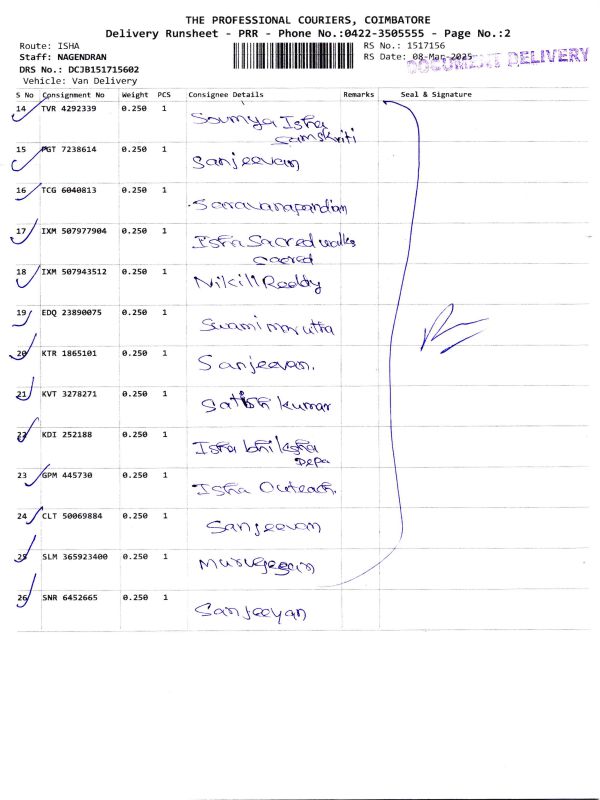 THE PROFESSIONAL COURIERS, COIMBATORE
Delivery Runsheet - PRR - Phone No.:0422-3505555 - Page No.:2
Route: ISHA
RS No.: 1517156
Staff: NAGENDRAN
RS Date: 08-Mar-2025
DOCUMENT DELIVERY
DRS No.: DCJB151715602
Vehicle: Van Delivery
S No Consignment No Weight PCS Consignee Details Remarks Seal & Signature
14 TVR 4292339 0.250 1 Soumya Isha
Samskriti
15 PGT 7238614 0.250 1 Sanjeevan
16 TCG 6040813 0.250 1 Saravanapandian
17 IXM 507977904 0.250 1 Isha Sacred walks
sacred
18 IXM 507943512 0.250 1 Nikill Reddy
19 EDQ 23890075 0.250 1 Swami
20 KTR 1865101 0.250 1 Sanjeevan.
21 KVT 3278271 0.250 1 Satish kumar
22 KDI 252188 0.250 1 Isha bhiksha
Depa
23 GPM 445730 0.250 1 Isha Outreach.
24 CLT 50069884 0.250 1 Sanjeevan
25 SLM 365923400 0.250 1 Murugesan
26 SNR 6452665 0.250 1 Sanjeevan